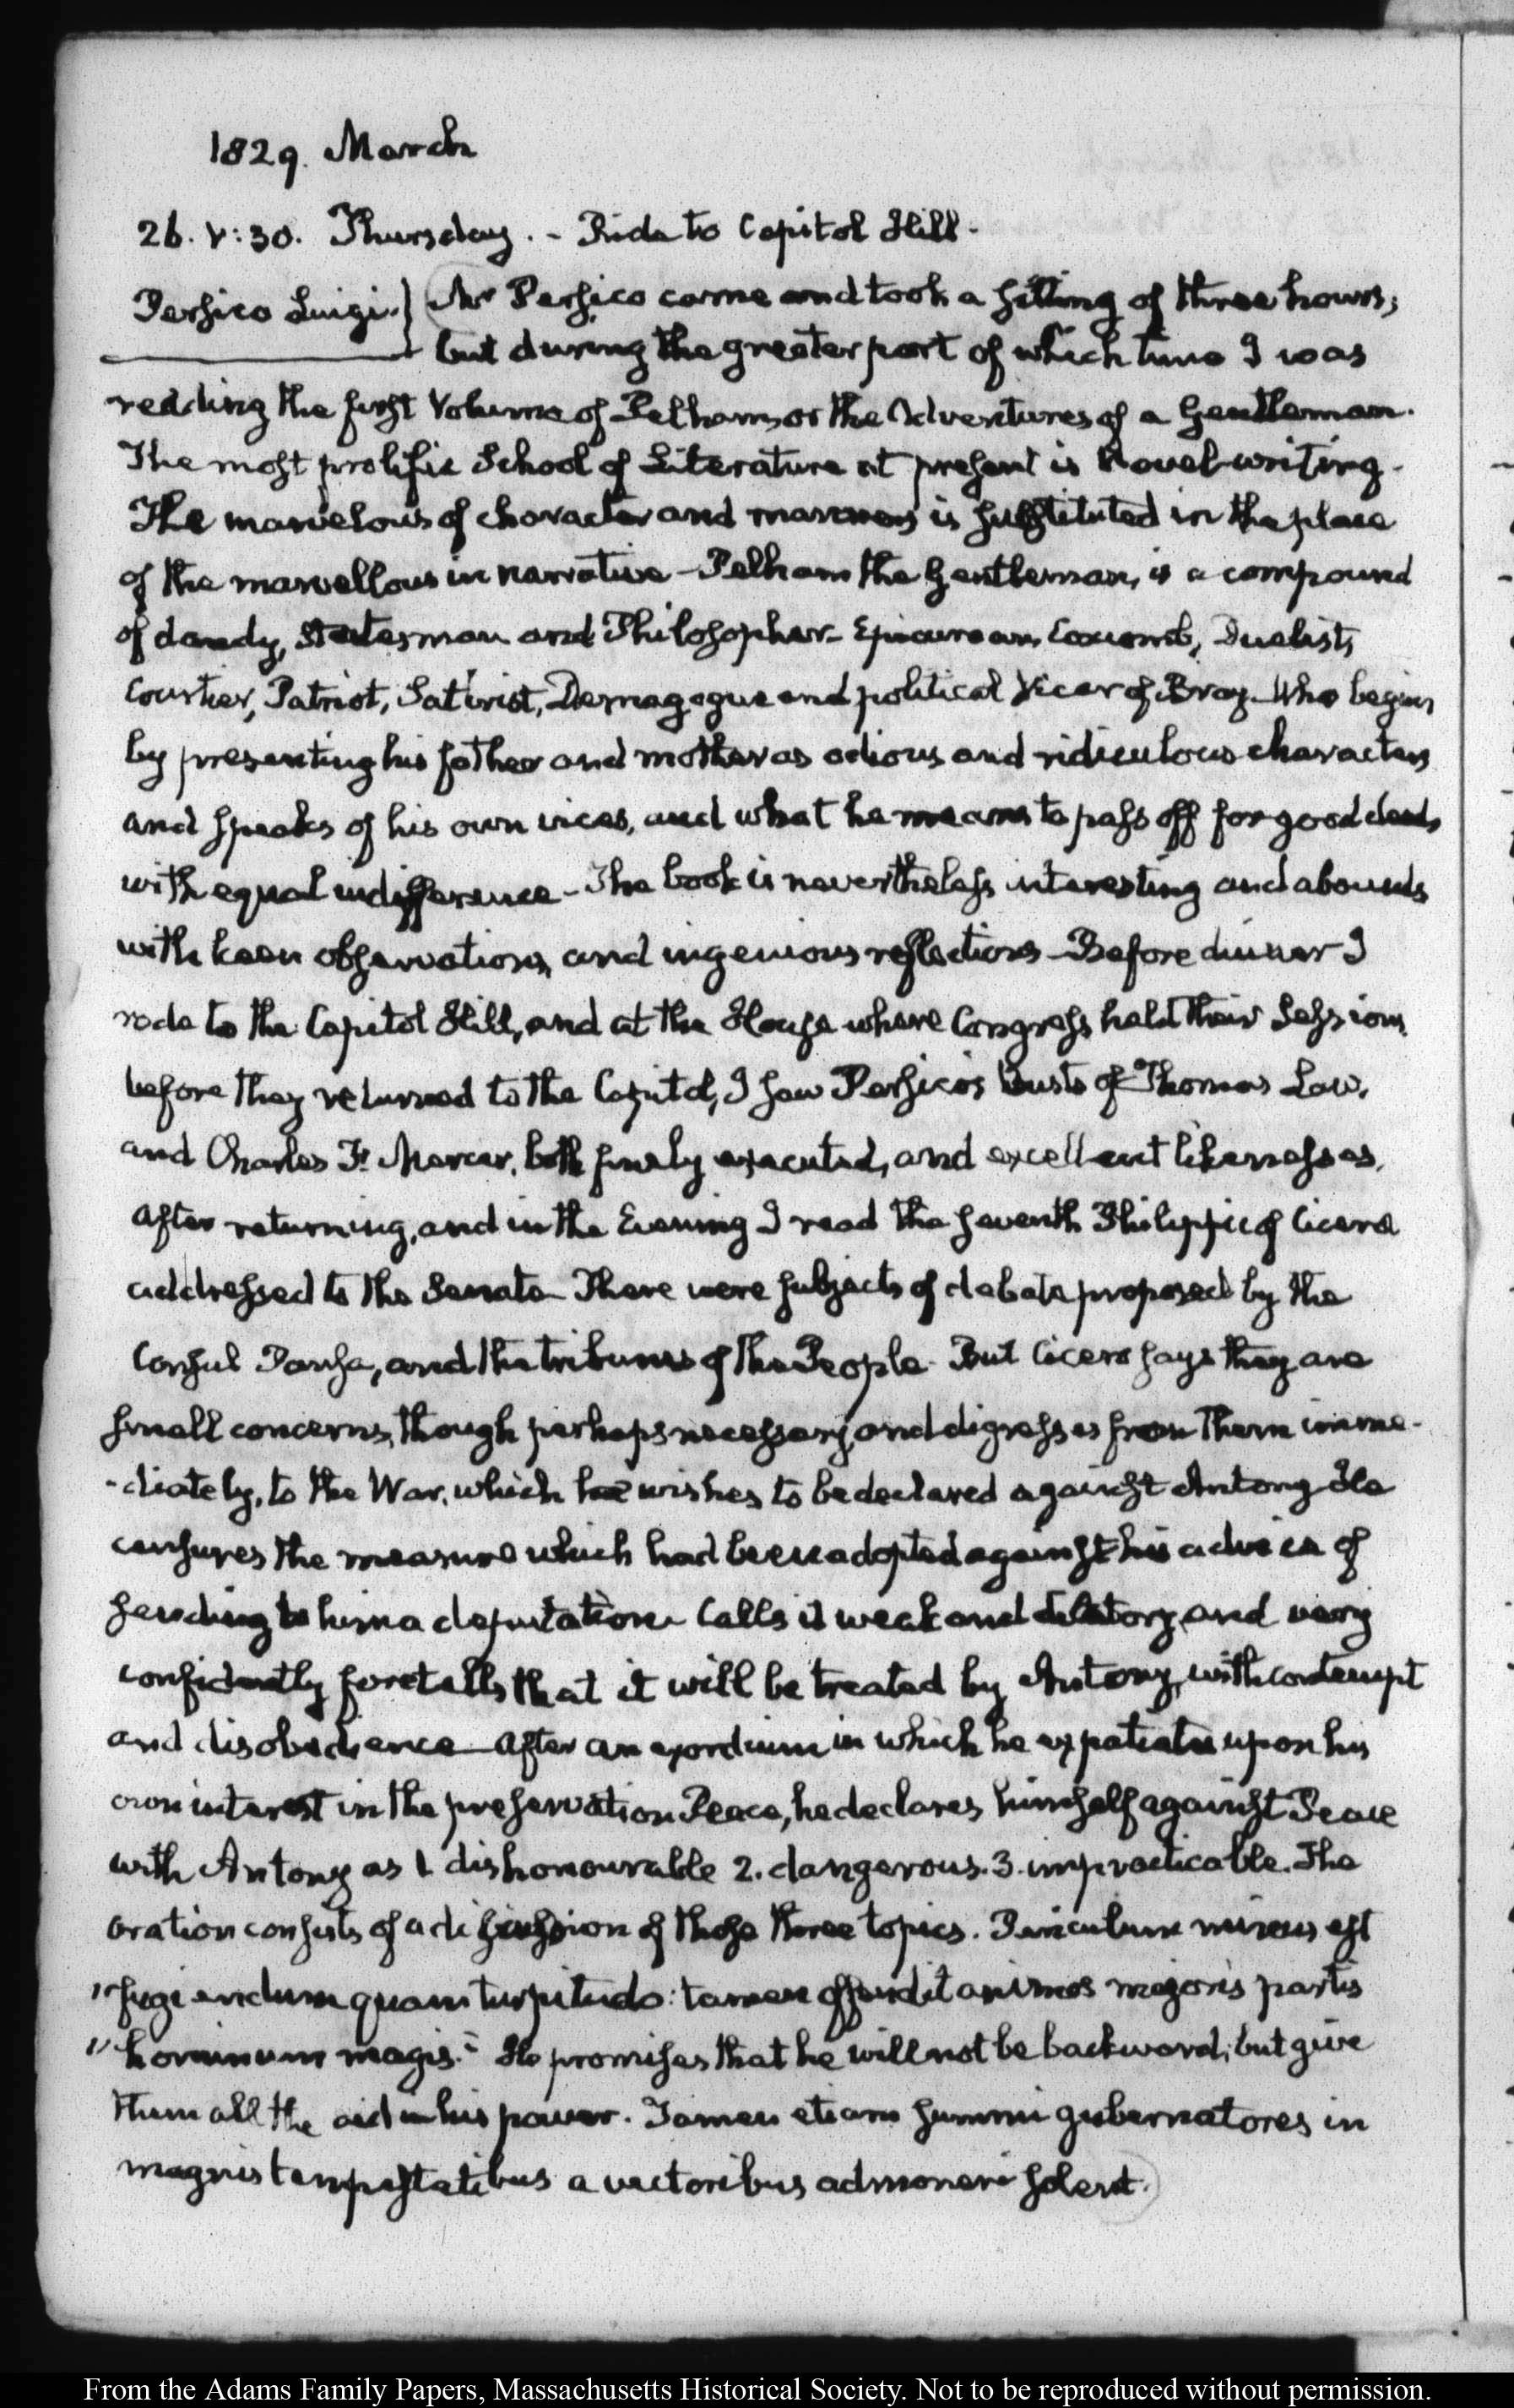 1829. March
26. V:30. Thursday. - Ride to Capitol Hill.
Persico Luigi.} Mr Persico came and took a sitting of three hours;
but during the greater part of which time I was
reading the first Volume of Pelham, or the Adventures of a Gentleman.
The most prolific School of Literature at present is Novel-writing.
The marvelous of character and manners is substituted in the place
of the marvellous in narrative - Pelham the Gentleman, is a compound
of dandy, Statesman and Philosopher - Epicurean, Coxcomb, Duelist,
Courtier, Patriot, Satirist, Demagogue and political Vicar of Bray. Who begins
by presenting his father and mother as odious and ridiculous characters
and speaks of his own vices, and what he means to pass off for good deeds,
with equal indifference - The book is nevertheless interesting and abounds
with keen observations, and ingenious reflections - Before dinner I
rode to the Capitol Hill, and at the House where Congress held their Sessions
before they returned to the Capitol, I saw Persico's busts of Thomas Law,
and Charles F. Mercer, both finely executed, and excellent likenesses.
After returning, and in the Evening I read the seventh Philippic of Cicero
addressed to the Senate - There were subjects of debate proposed by the
Consul Pansa, and the tribunes of the People - But Cicero says they are
small concerns, though perhaps necessary, and digresses from them imme-
-diately, to the War, which he wishes to be declared against Antony - He
censures the measure which had been adopted against his advice of
sending to him a deputation - Calls it weak and dilatory, and very
confidently foretells that it will be treated by Antony, with contempt
and disobedience - After an exordium in which he expatiates upon his
own interest in the preservation Peace, he declares himself against Peace
with Antony as 1. dishonourable 2. dangerous. 3. impracticable. The
oration consists of a discussion of those three topics. Periculum minus est
"fugiendum quam turpitudo: tamen offendit animos majoris partis
"hominum magis." He promises that he will not be backward; but give
them all the aid in his power. Tamen etiam summi gubernatores in
magnis tempestatibus a vectoribus admoneri solent.
From the Adams Family Papers, Massachusetts Historical Society. Not to be reproduced without permission.